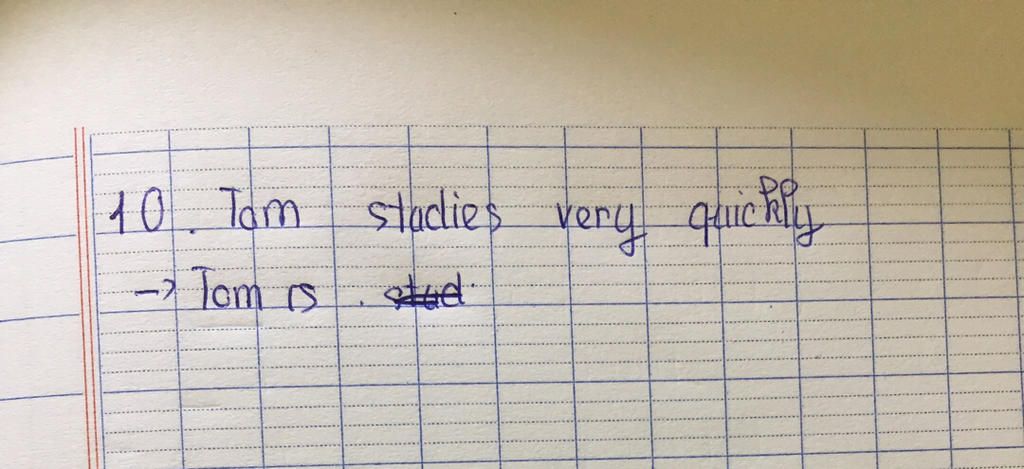 10. Tom studies very quickly
→ Tom is .